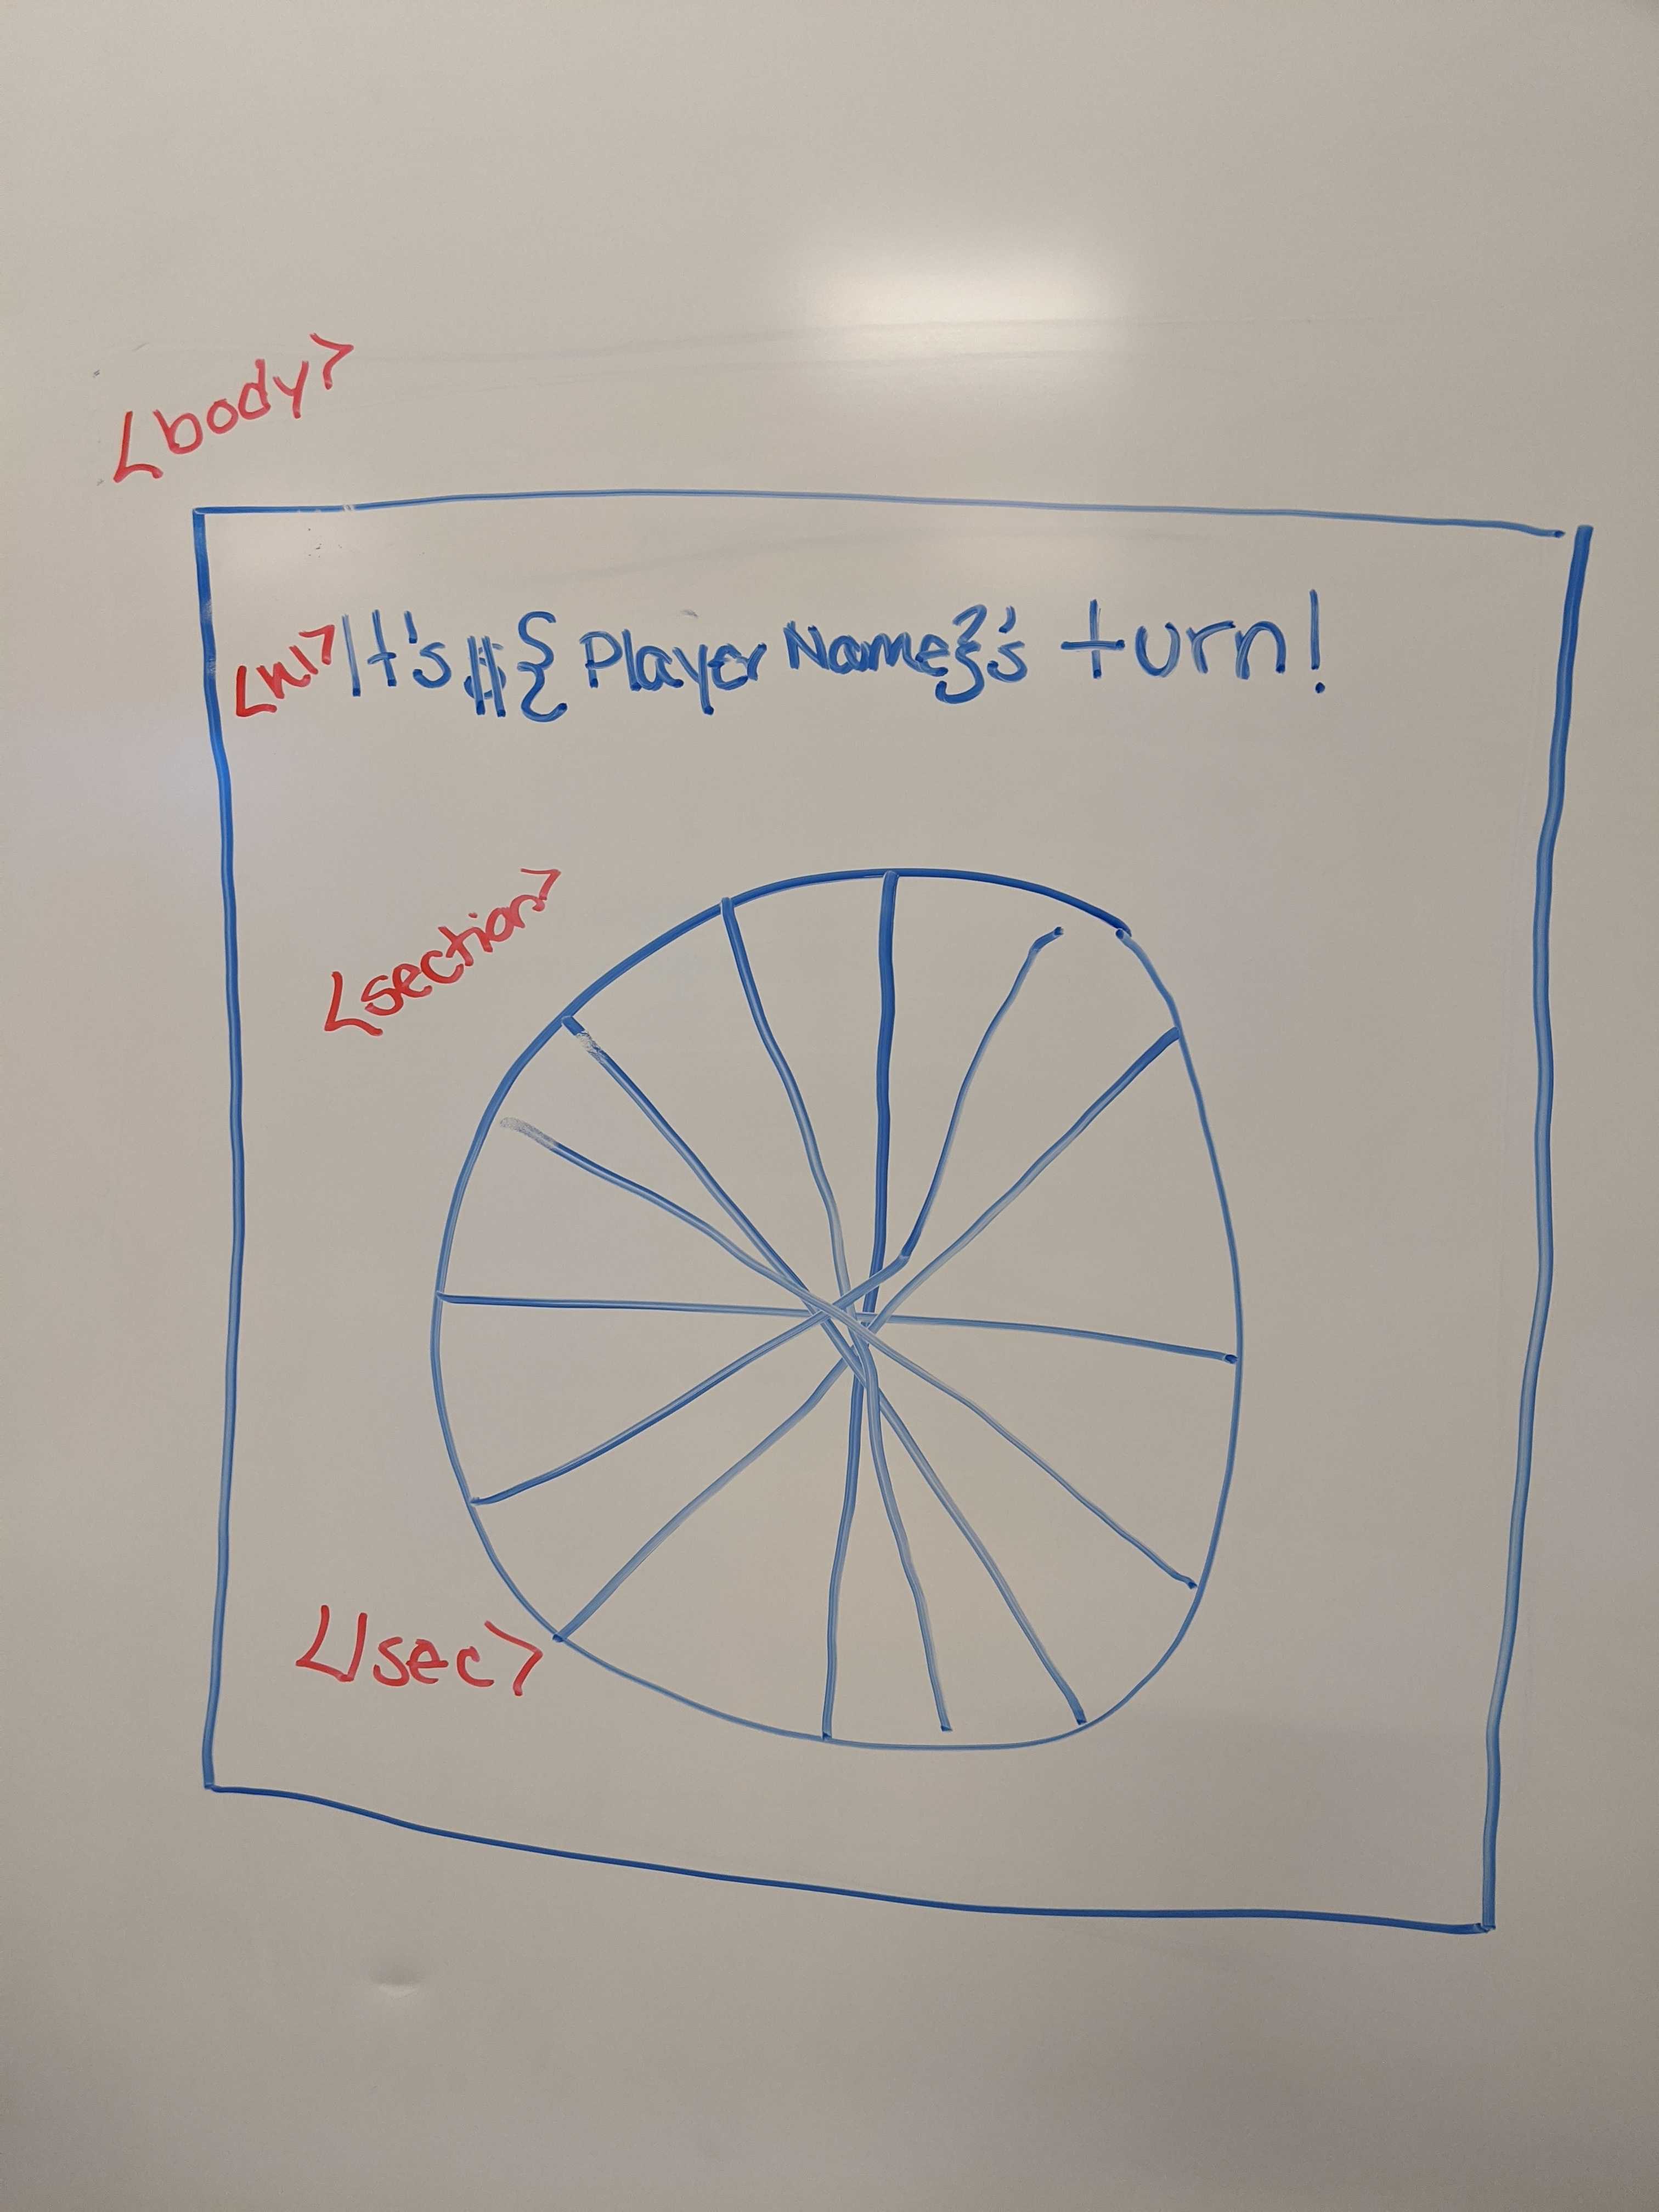 <body>
<h1> It's ${Player Name}'s turn!
<section>
</sec>